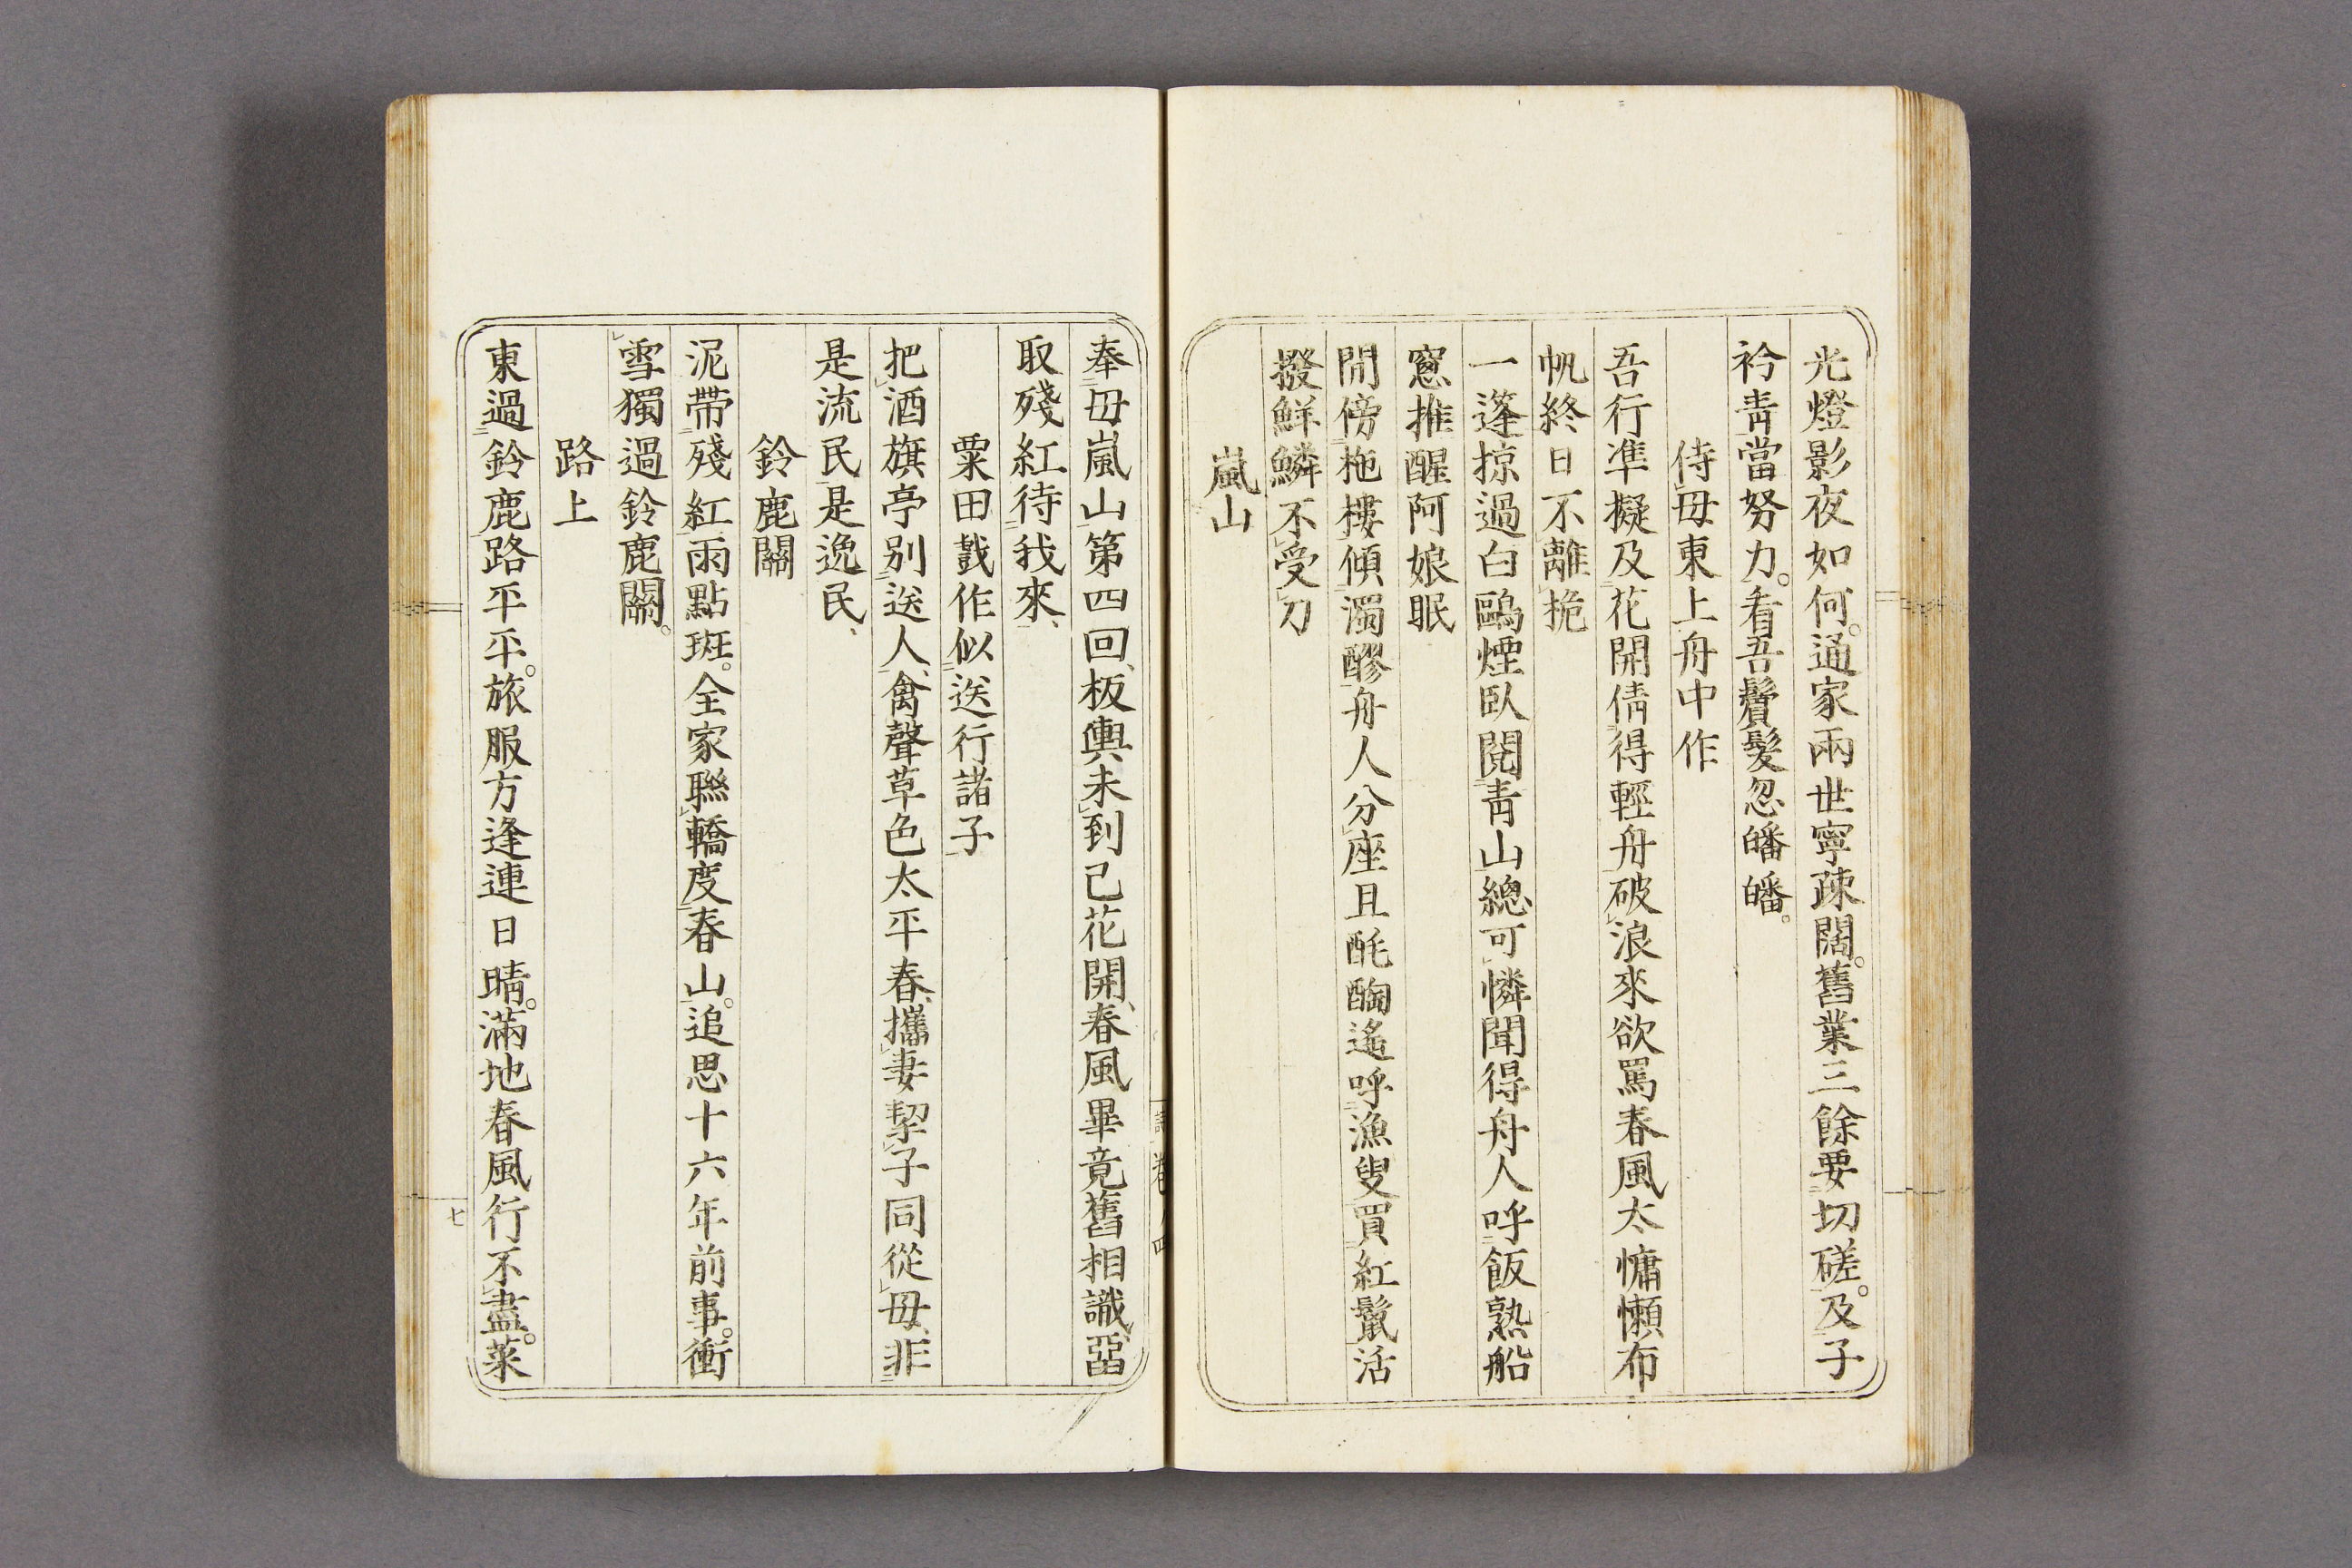 光燈影夜如何。通家兩世寧疎闊。舊業三餘要切磋。及子
衿靑當努力。看吾鬢髮忽皤皤。
侍母東上舟中作
吾行準擬及花開倩得輕舟破浪來欲罵春風太慵懶布
帆終日不離桅
一篷掠過白鷗煙臥閱靑山總可憐聞得舟人呼飯熟船
窻推醒阿娘眠
閒傍柂樓傾濁醪舟人分座且酕醄遙呼漁叟買紅鬣活
撥鮮鱗不受刀
嵐山
奉母嵐山第四回、板輿未到已花開、春風畢竟舊相識、函
取殘紅待我來、
粟田戲作似送行諸子
把酒旗亭別送人、禽聲草色太平春、攜妻挈子同從母、非
是流民是逸民、
鈴鹿關
泥帶殘紅雨點斑。全家聯轎度春山。追思十六年前事。衝
雪獨過鈴鹿關。
路上
東過鈴鹿路平平。旅服方逢連日晴。滿地春風行不盡。菜
七